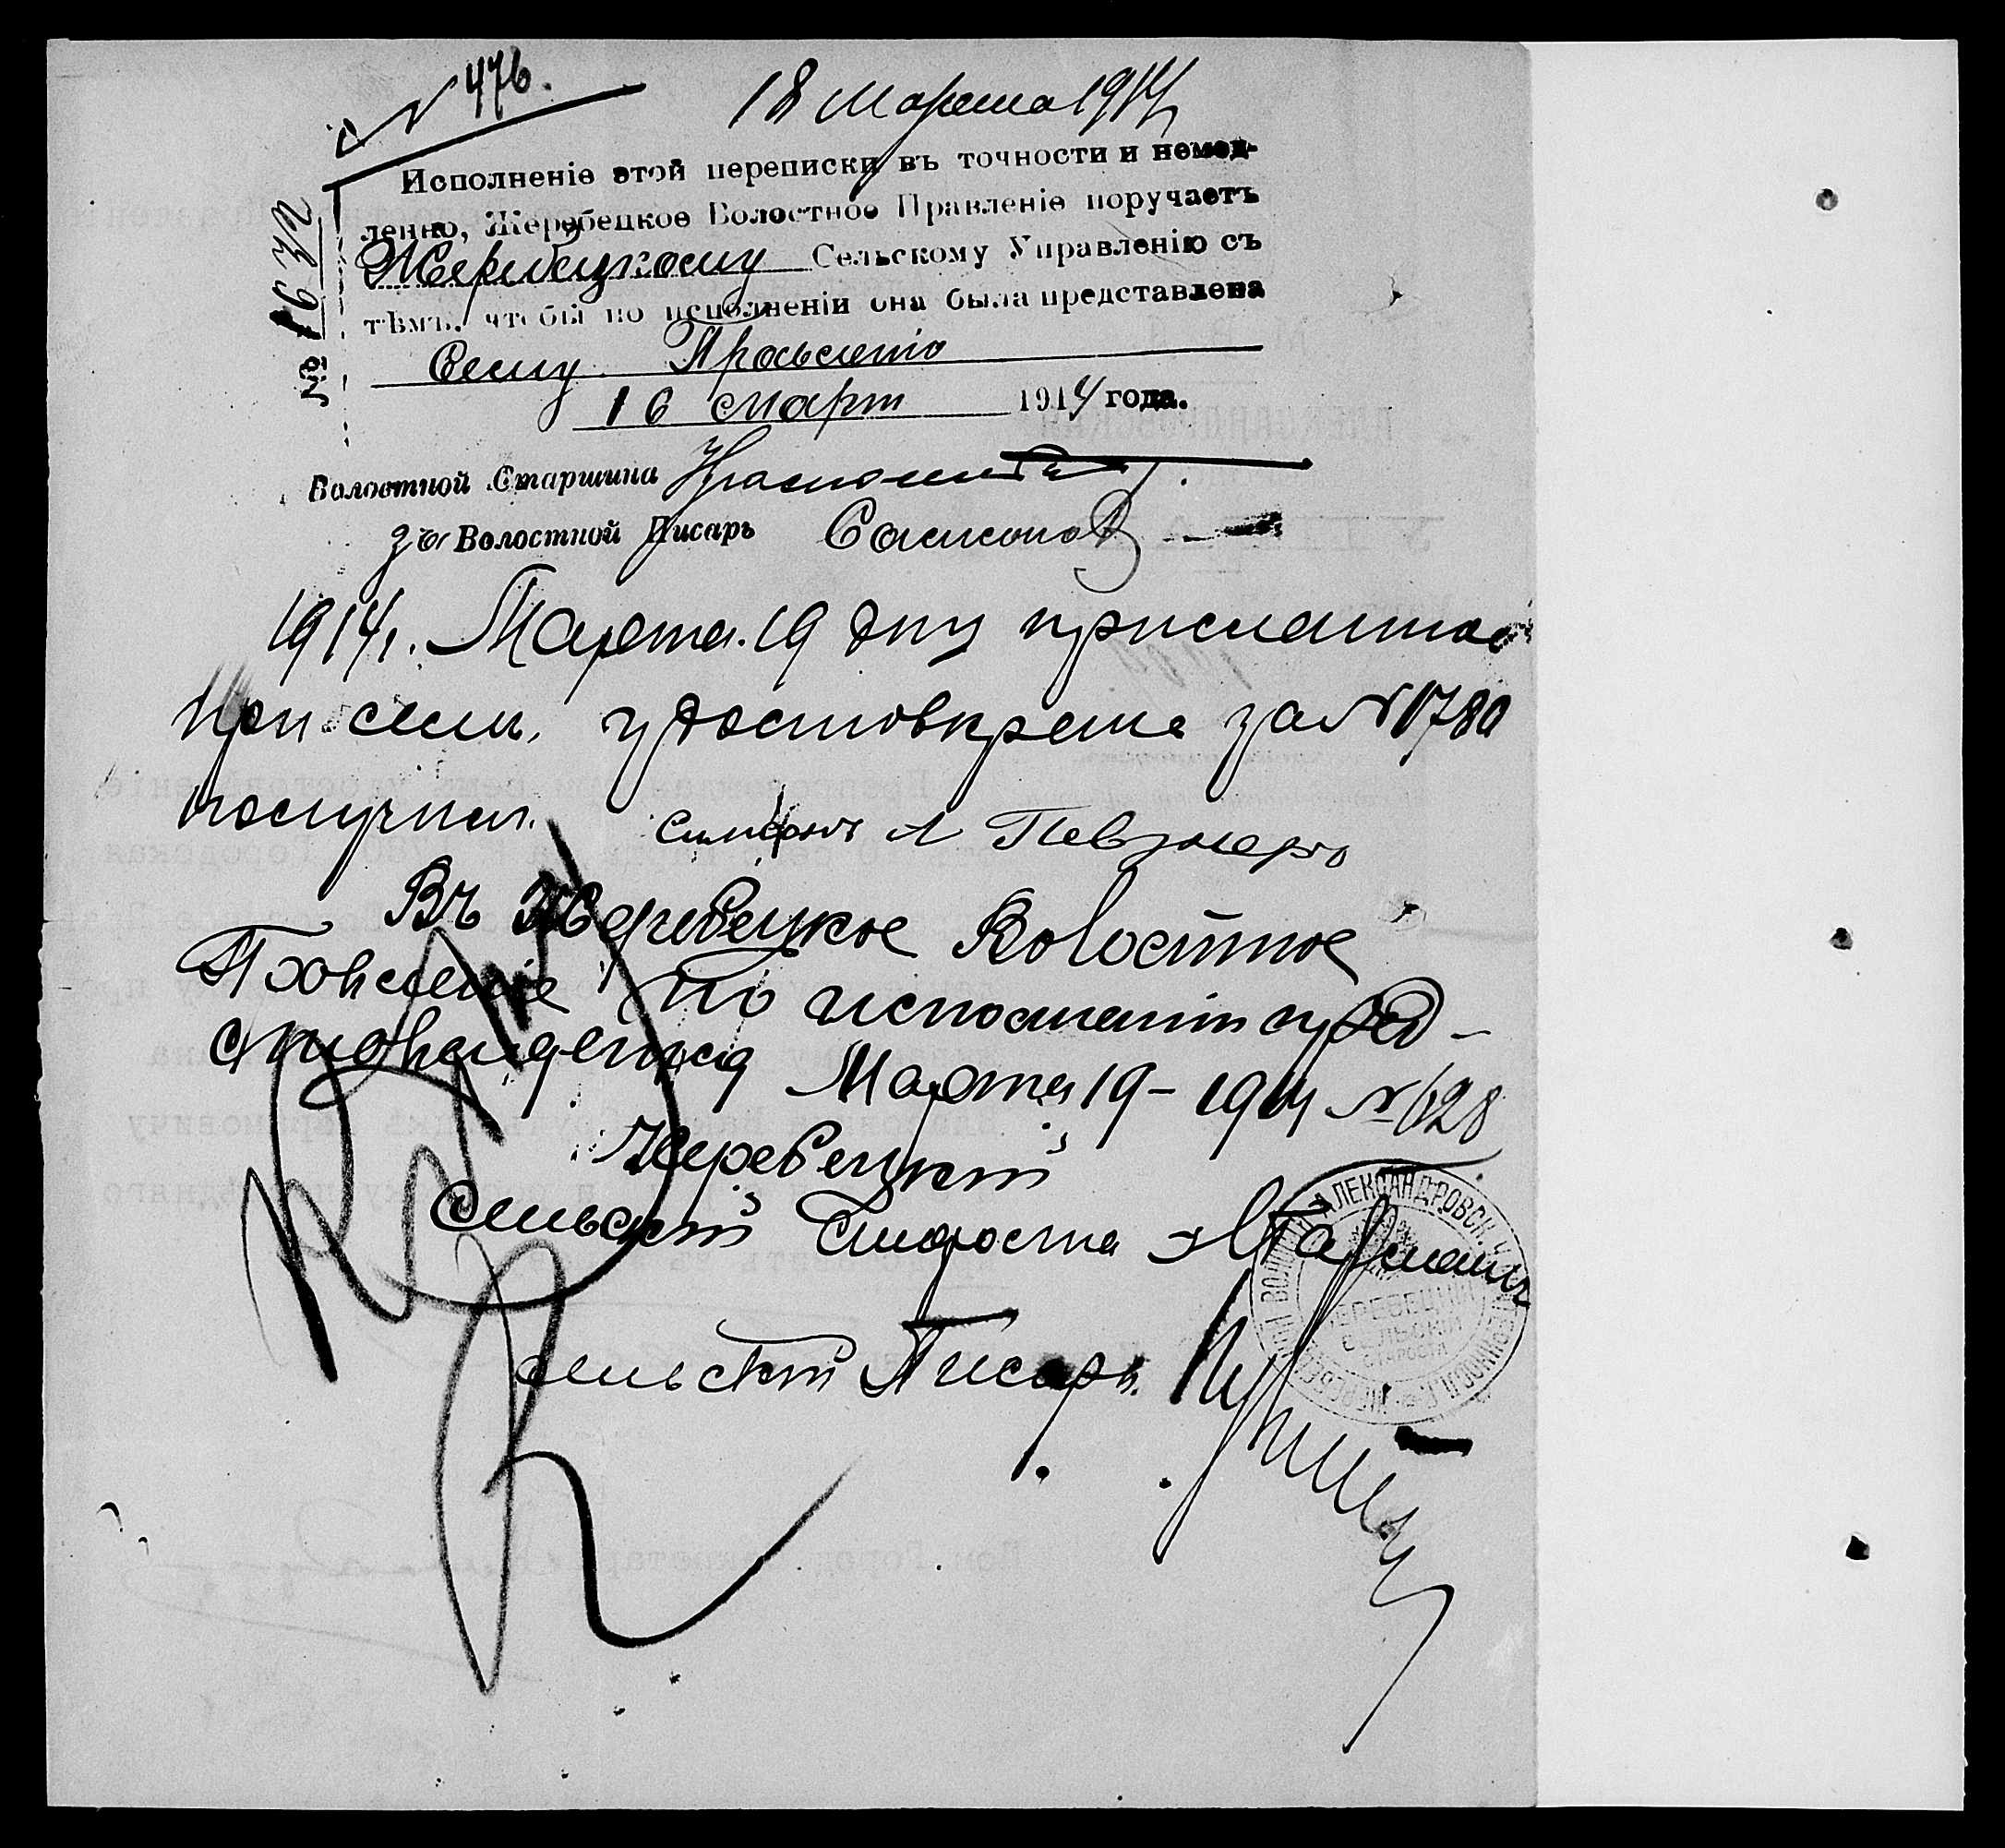 № 476. 18 Марта 1914
Исполненіе этой переписки въ точности и немед-
ленно, Жеребецкое Волостное Правленіе поручаетъ
Жеребецкому Сельскому Управленію съ
тѣмъ, чтобы по исполненіи она была представлена
Сему Правленію
16 март 1914 года.
№ 1632
Волостной Старшина
за Волостной Писарь Самсонов
1914г. Марта 19 дну присланное
при сем, удостовѣрене за № 1780
получил. Симхонъ Л Певзнеръ
Въ Жеребецкое Волостное
Правленіе по исполненіи пред-
ставляется Марта 19 - 1914 № 628
Жеребецкій
Сельскій Староста
Сельскій Писарь
АЛЕКСАНДРОВСК. У.
ЖЕРЕБЕЦКІЙ
СЕЛЬСКІЙ
СТАРОСТА